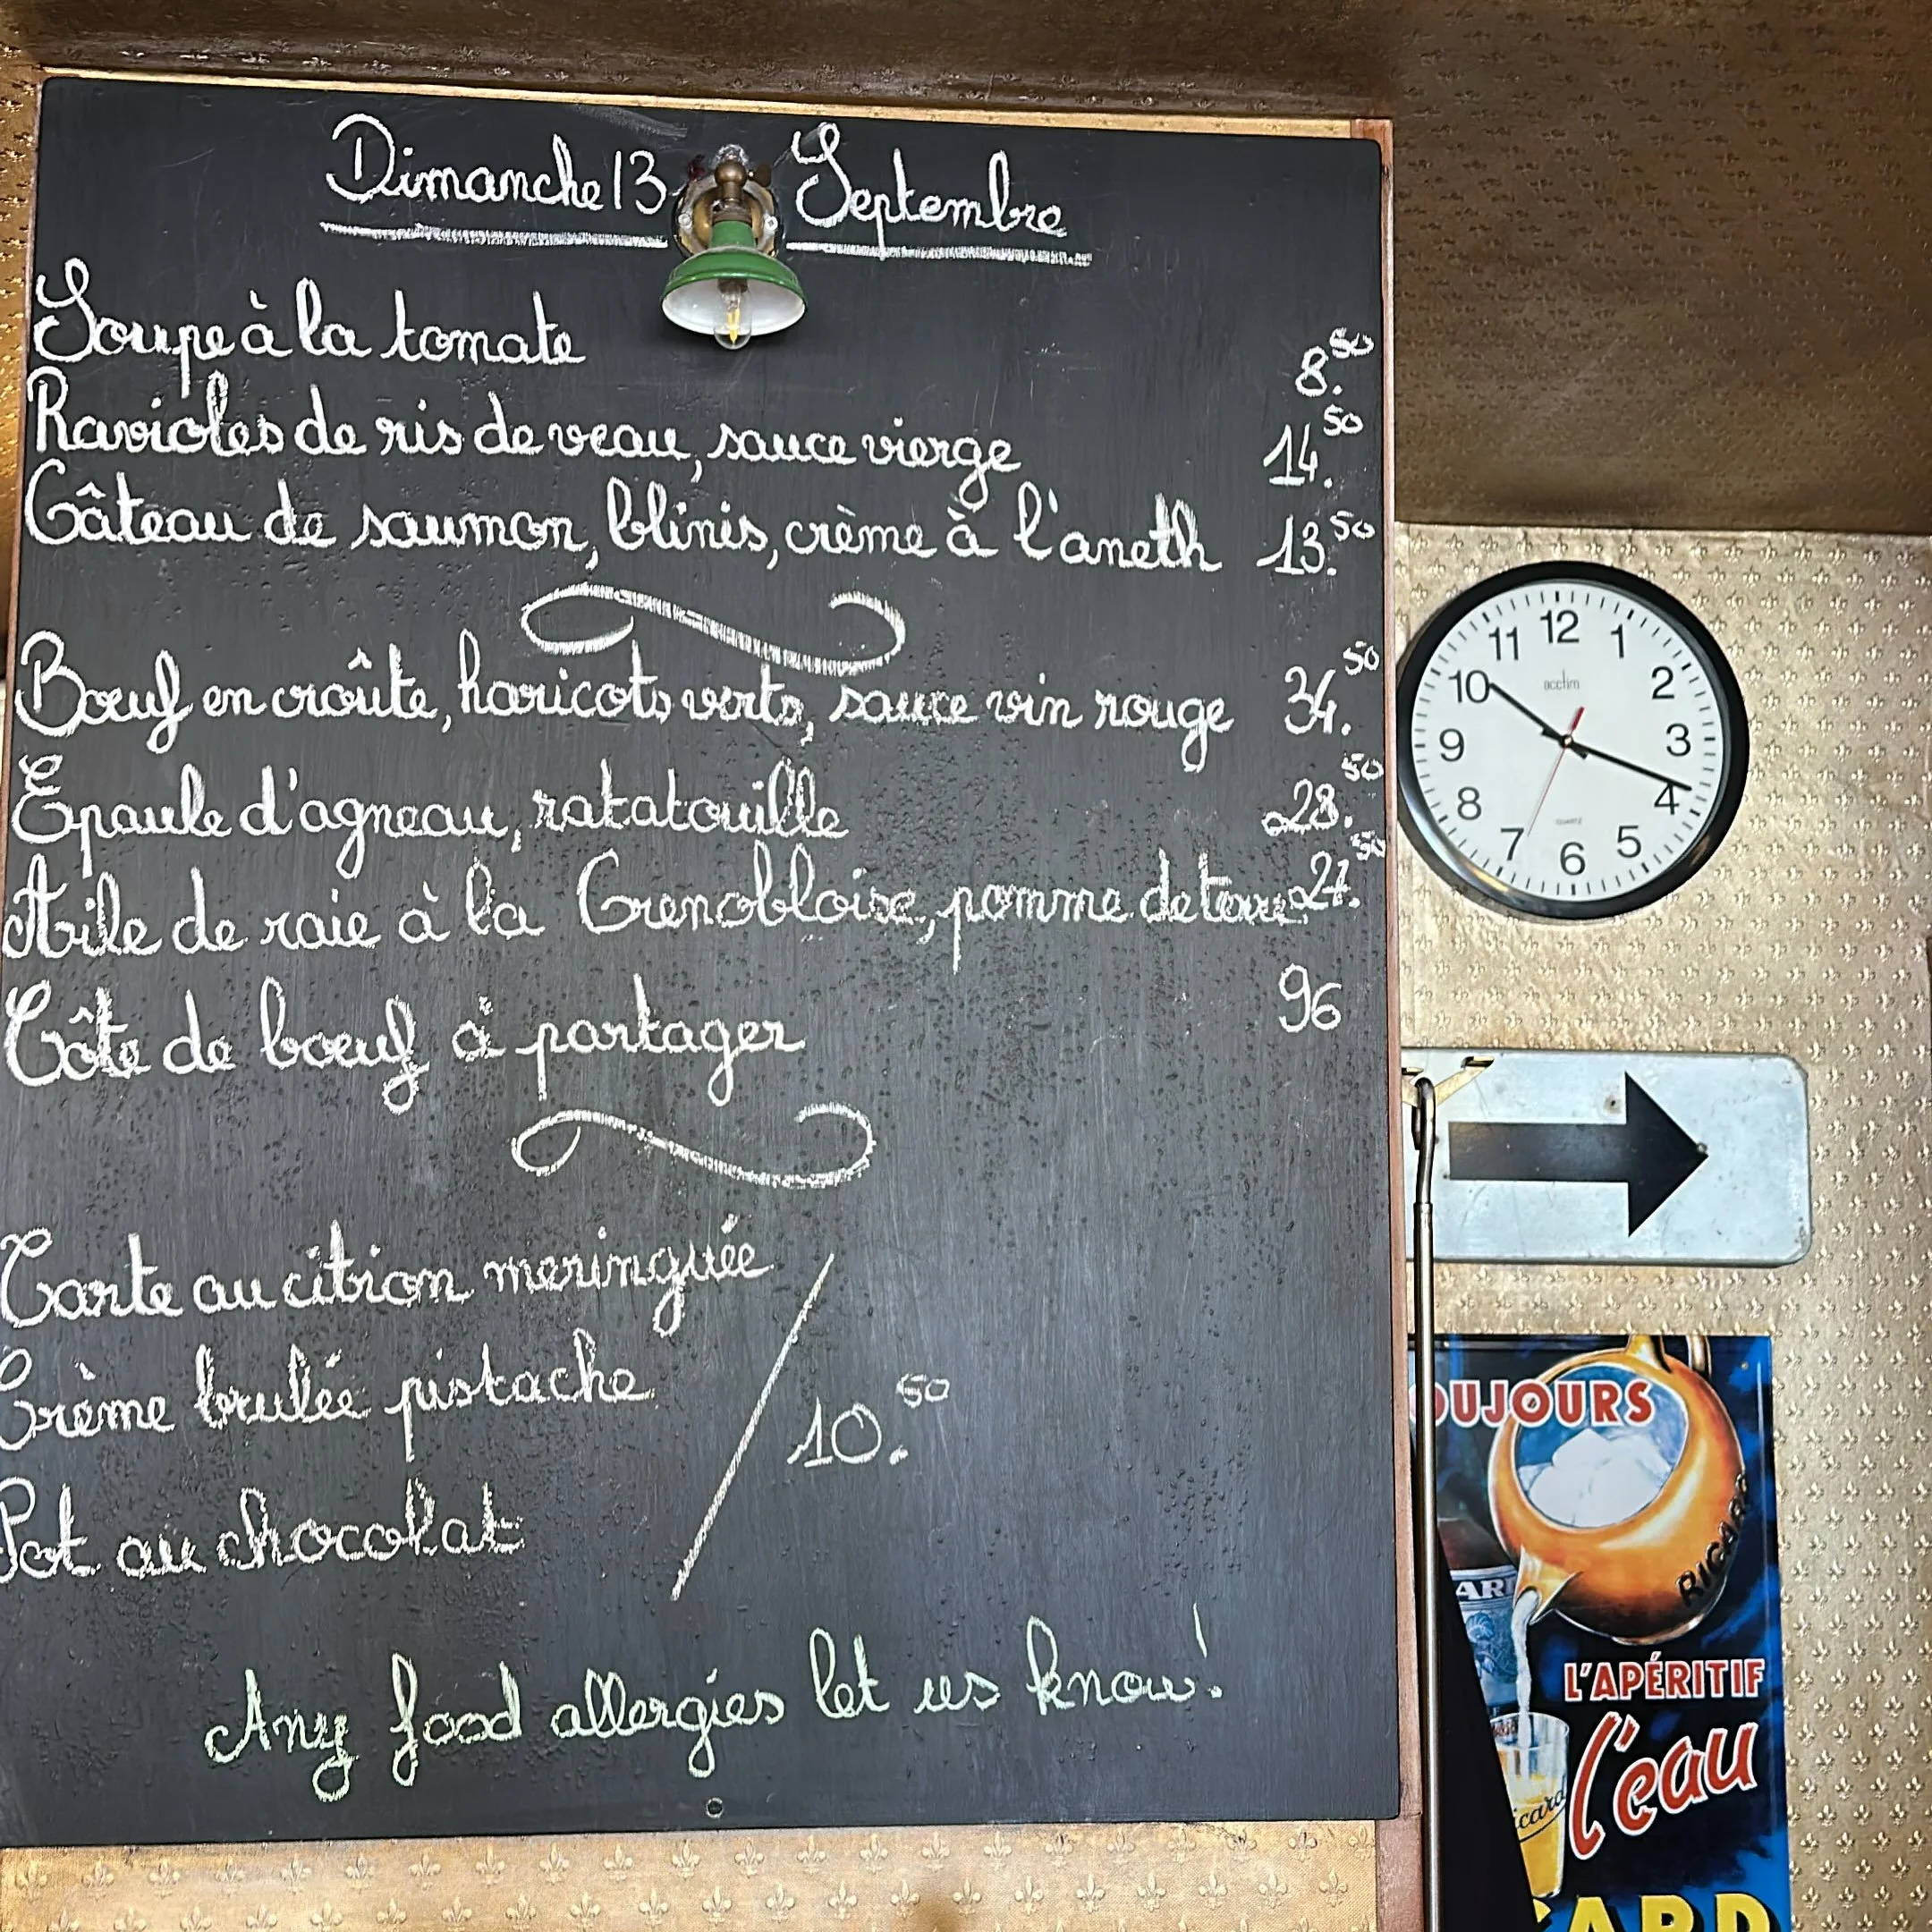 Dimanche 13 Septembre
Soupe à la tomate 8.50
Ravioles de ris de veau, sauce vierge 14.50
Gâteau de saumon, blinis, crème à l'aneth 13.50
Bœuf en croûte, haricots verts, sauce vin rouge 34.50
Epaule d'agneau, ratatouille 28.50
Aile de raie à la Grenobloise, pomme de terre 27.50
Côte de bœuf à partager 96
Tarte au citron meringuée
Crème brulée pistache
10.50
Pot au chocolat
Any food allergies let us know!
12
11 1
10 2
acctim
9 3
8 4
QUARTZ
7 5
6
OUJOURS
RICARD
ARD
L'APÉRITIF
l'eau
icard
CARD